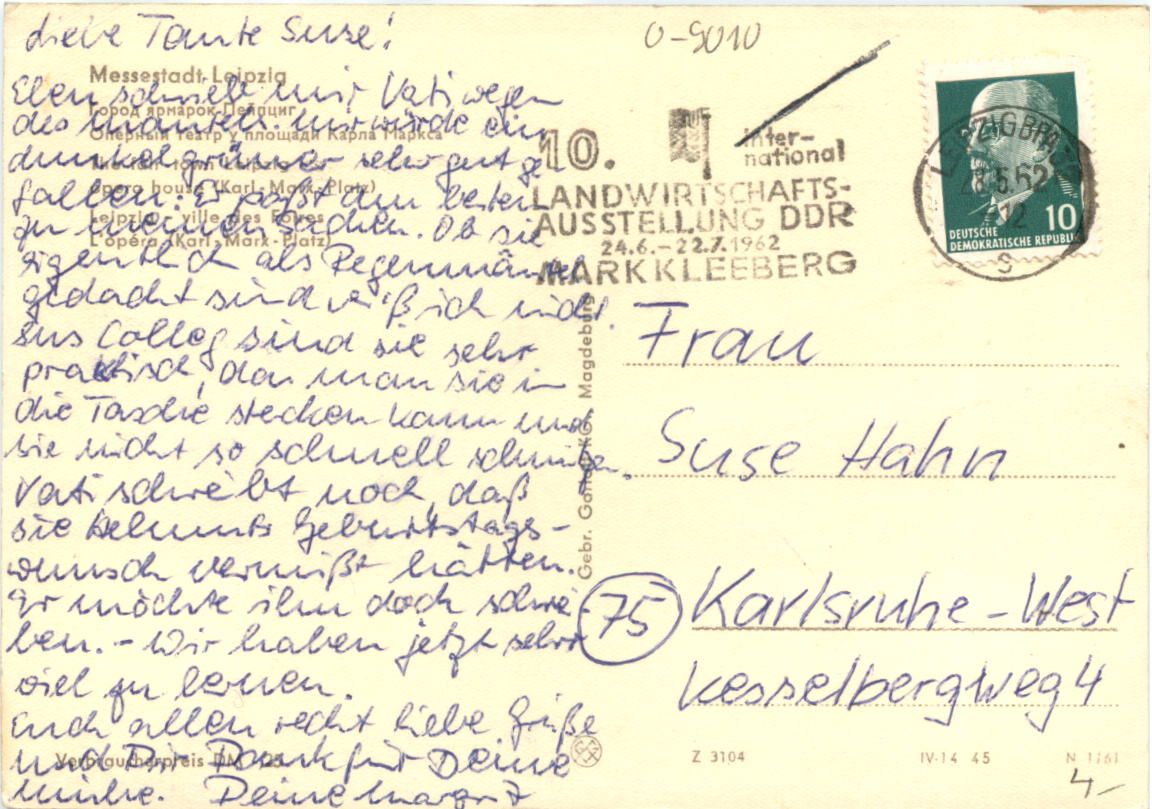 Liebe Tante Suse!
Eben schrieb mir Vati wegen
des Mantels. Mir würde ein
dunkelgrüner sehr gut ge
fallen. Er paßt am besten
zu meinen Sachen. Ob sie
eigentlich als Regenmäntel
gedacht sind weiß ich nicht.
Fürs Colleg sind sie sehr
praktisch, da man sie in
die Tasche stecken kann und
sie nicht so schnell schmutzen.
Vati schreibt noch, daß
sie Helmuts Geburtstags-
wunsch vermißt hätten.
Er möchte ihn doch schrei
ben. - Wir haben jetzt sehr
viel zu lernen.
Euch allen recht liebe Grüße
und Dir Dank für Deine
Mühe. Deine Margrit
Messestadt Leipzig
Город ярмарок Лейпциг
Оперный театр у площади Карла Маркса
Opera house (Karl-Marx-Platz)
Leipzig - ville des Foires
L'opéra (Karl-Marx-Platz)
Verbraucherpreis DM
Gebr. KG, Magdeburg
0-9010
10.
inter-
national
LANDWIRTSCHAFTS-
AUSSTELLUNG DDR
24.6.-22.7.1962
MARKKLEEBERG
LEIPZIG BPA
28.5.62
S
10
DEUTSCHE
DEMOKRATISCHE REPUBLIK
Frau
Suse Hahn
75 Karlsruhe-West
Kesselbergweg 4
Z 3104
IV-14 45
N 1/61
4,-